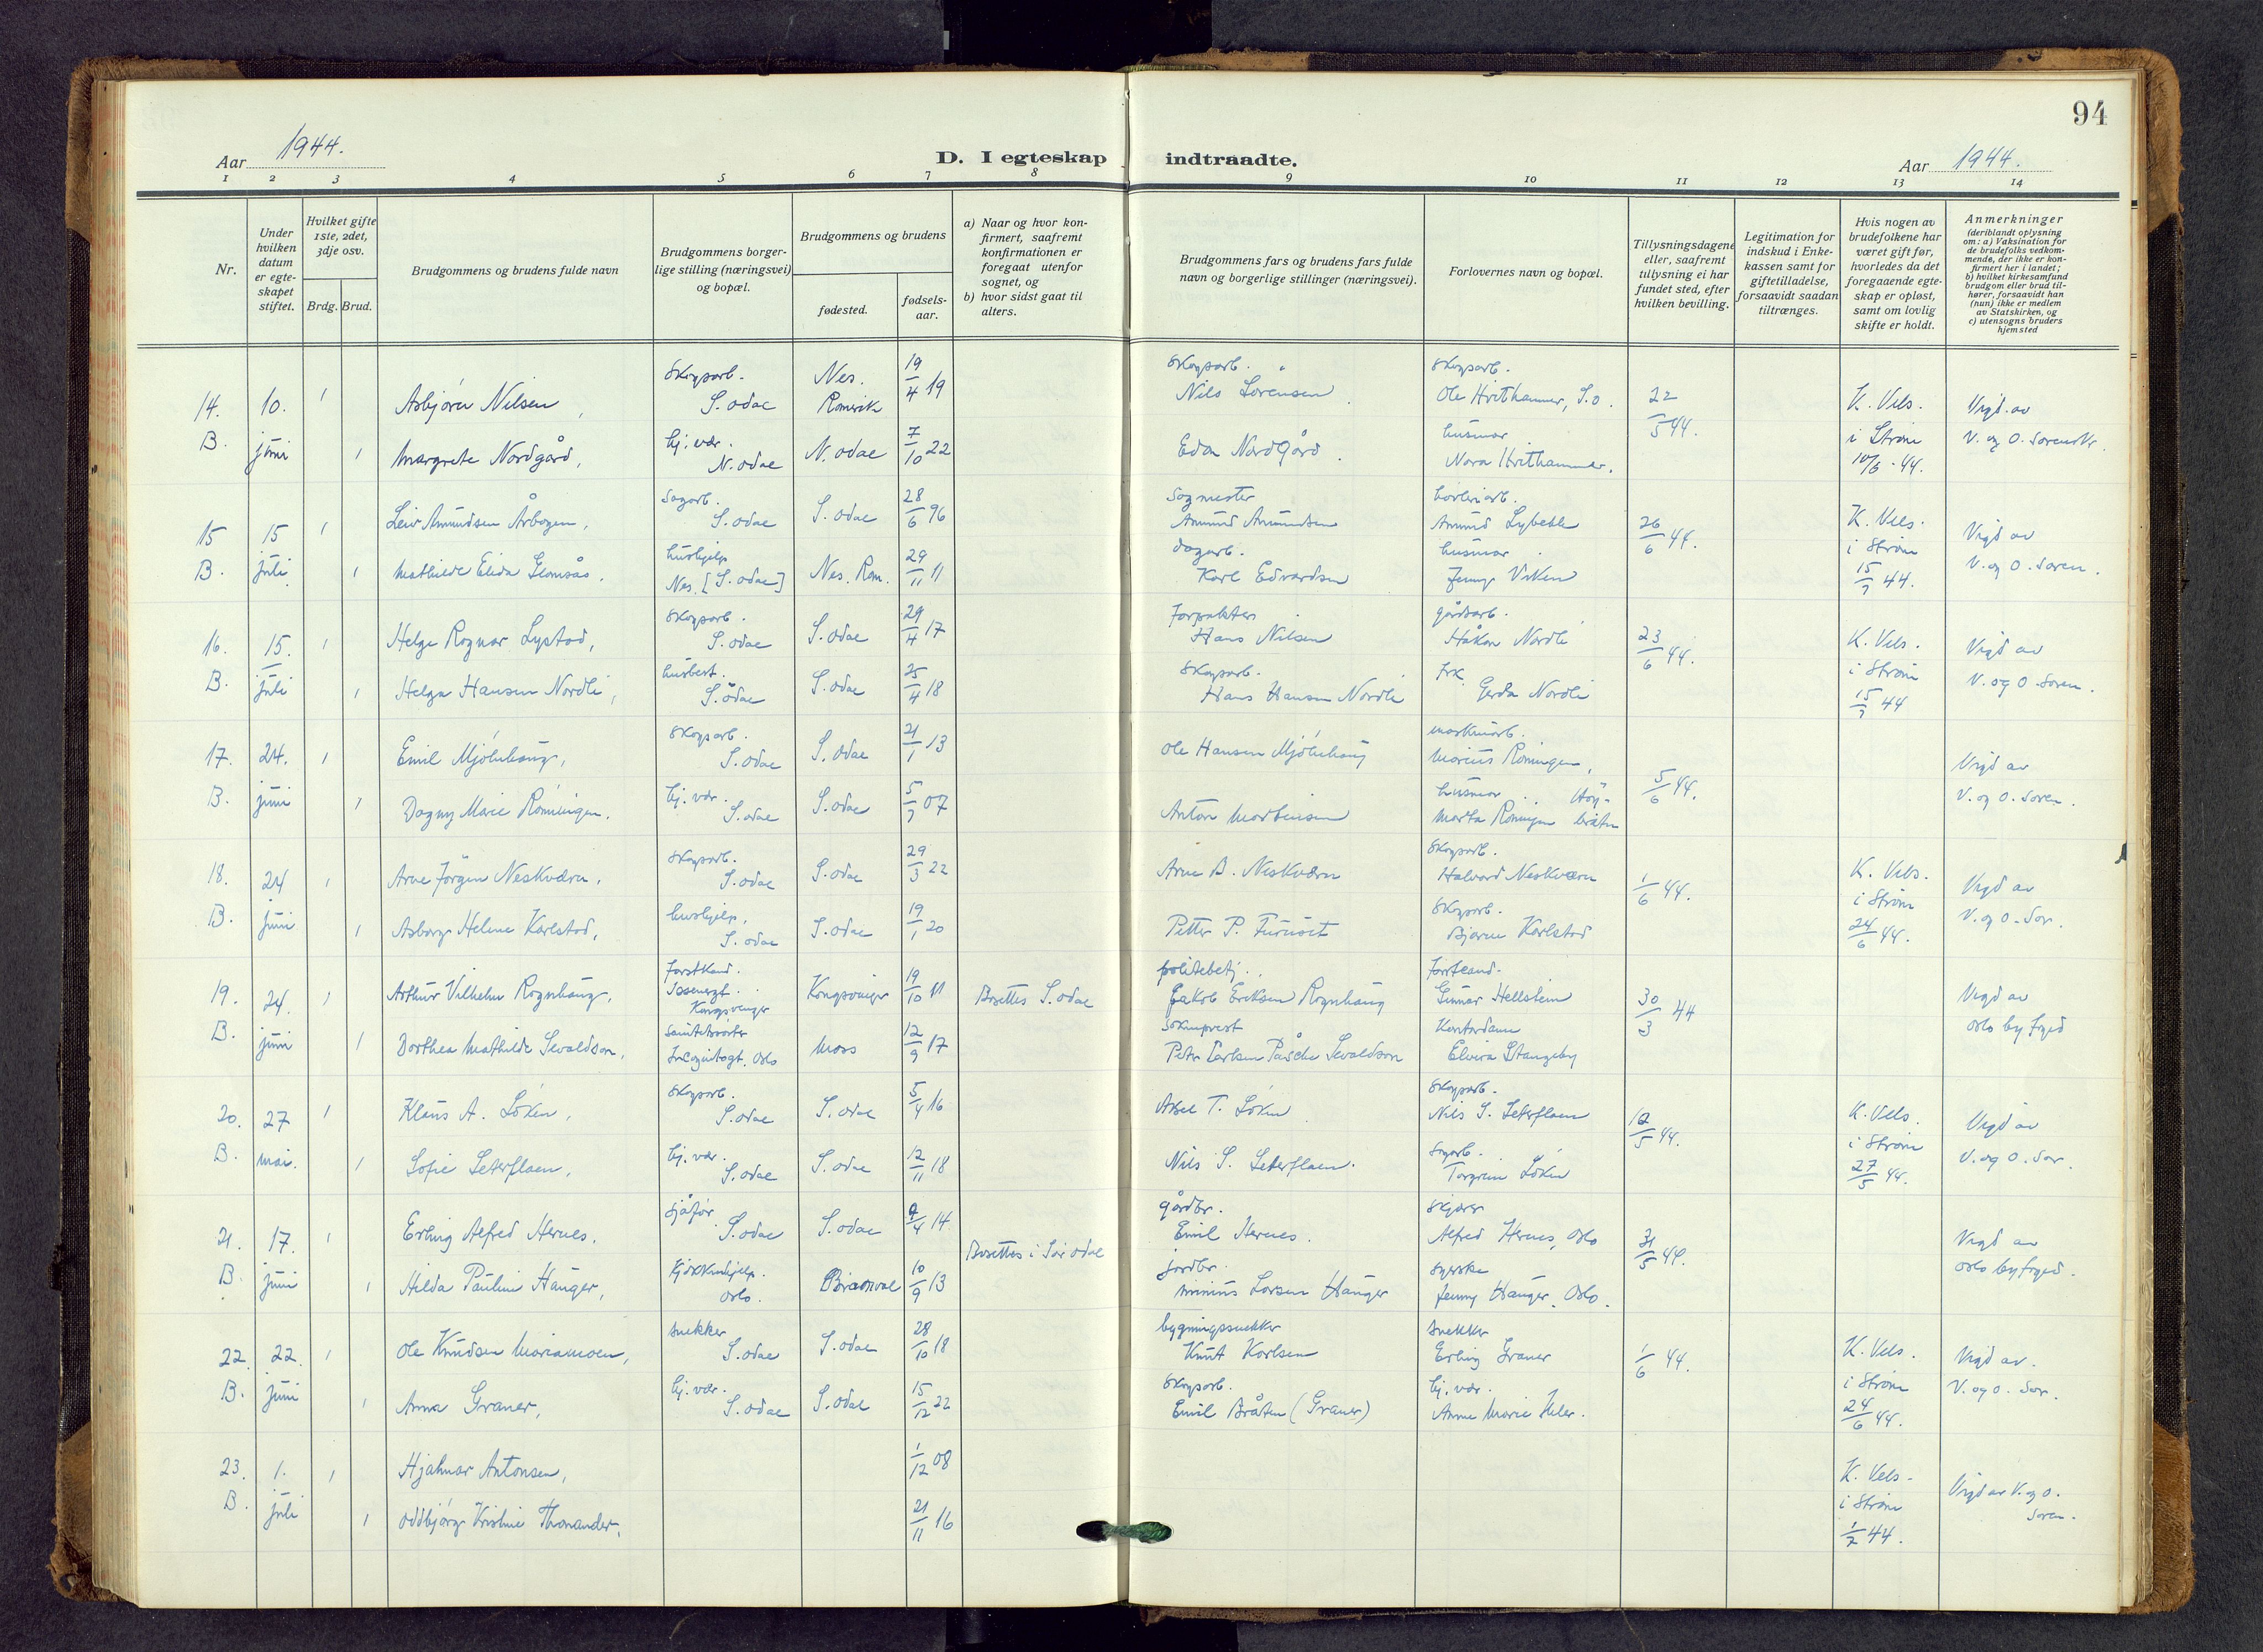 94
Aar 1944.
D. I egteskap indtraadte.
Aar 1944.
1 2 3 4 5 6 7 8 9 10 11 12 13 14
Nr.
Under hvilken datum er egteskapet stiftet.
Hvilket gifte 1ste, 2det, 3dje osv.
Brdg. Brud.
Brudgommens og brudens fulde navn
Brudgommens borgerlige stilling (næringsvei) og bopæl.
Brudgommens og brudens
fødested.
fødselsaar.
a) Naar og hvor konfirmert, saafremt konfirmationen er foregaat utenfor sognet, og
b) hvor sidst gaat til alters.
Brudgommens fars og brudens fars fulde navn og borgerlige stillinger (næringsvei).
Forlovernes navn og bopæl.
Tillysningsdagene eller, saafremt tillysning ei har fundet sted, efter hvilken bevilling.
Legitimation for indskud i Enkekassen samt for giftetilladelse, forsaavidt saadan tiltrænges.
Hvis nogen av brudefolkene har været gift før, hvorledes da det foregaaende egteskap er opløst, samt om lovlig skifte er holdt.
Anmerkninger (deriblandt oplysning om: a) Vaksination for de brudefolks vedkommende, der ikke er konfirmert her i landet; b) hvilket kirkesamfund brudgom eller brud tilhører, forsaavidt han (hun) ikke er medlem av Statskirken, og c) utensogns bruders hjemsted
14. 10. 1 Asbjørn Nilsen, Skogsarb. S. odal Nes. Romerik 19/4 19 Skogsarb. Nils Sørensen. Skogsarb. Ole Hvithammer, S.o. 22/5 44. K. Vels. Vigd av
B. juni 1 Margrete Nordgård, hj. vær. N. odal N. odal 7/10 22 Edon Nordgård. husmor Nora Hvithammer. i Strøm 10/6-44. V. og O. Sorenskr.
15 15 1 Leiv Amundsen Årbogen, Sagarb. S. odal S. odal 28/6 96 Sagmester Amund Amundsen Amund Lybekk 26/6 44. K. Vels. Vigd av
B. juli 1 Mathilde Elida Glomsås. hushjelp Nes. [S. odal] Nes. Rom. 29/11 11 dagarb. Karl Edvardsen husmor Jenny Viken i Strøm 15/7 44. V. og O. Soren.
16. 15. 1 Helge Ragnar Lystad, Skogsarb. S. odal S. odal 29/4 17 Forpakter Hans Nilsen gårdsarb. Håkon Nordli 23/6 44. K. Vels. Vigd av
B. juli 1 Helga Hansen Nordli, husbest. S. odal S. odal 25/4 18 Skogsarb. Hans Hansen Nordli Frk. Gerda Nordli i Strøm 15/7 44 V. og O. Soren.
17. 24. 1 Emil Mjölnhaug, Skogsarb. S. odal S. odal 21/1 13 Ole Hansen Mjölnhaug Marius Röningen, 5/6 44. Vigd av
B. juni 1 Dagny Marie Röningen. hj. vær. S. odal S. odal 5/7 07 Anton Martinsen husmor Marta Röningen V. og O. Soren.
18. 24 1 Arne Jörgen Neskværn, Skogsarb. S. odal S. odal 29/3 22 Arne B. Neskværn Skogsarb. Halvard Neskværn 1/6 44. K. Vels. Vigd av
B. juni 1 Asborg Helene Karlstad, hushjelp, S. odal S. odal 19/1 20 Petter P. Furuset Skogsarb. Bjarne Karlstad i Strøm 24/6 44. V. og O. Sor.
19. 24. 1 Arthur Vilhelm Rognhaug, Forstkand. Kongsvinger Kongsvinger 19/10 11 Bosettes S. odal politibetj. Jakob Eriksen Rognhaug Forstkand. Gunnar Hellstein 30/3 44 Vigd av
B. juni 1 Dorthea Mathilde Sevaldson, Incognitogt. Oslo Moss 12/9 17 Sokneprest Peter Carlsen Pasche Sevaldson Kontordame Elvira Stangeby Oslo byfogd
20. 27 1 Klaus A. Löken, Skogsarb. S. odal S. odal 5/4 16 Aksel T. Löken Skogsarb. Nils S. Seterflaen 12/5 44. K. Vels. Vigd av
B. mai. 1 Sofie Seterflaen, hj. vær. S. odal S. odal 12/11 18 Nils S. Seterflaen. Sagarb. Torgrim Löken i Strøm 27/5 44. V. og O. Sor.
21. 17. 1 Erling Alfred Hernes, sjåför S. odal S. odal 9/4 14. Bosettes i Sør odal gårdbr. Emil Hernes. Alfred Hernes, Oslo 31/5 44. Vigd av
B. juni 1 Hilda Pauline Hauger, kjökkenhjelp. Oslo. 10/9 13 jordbr. Larsen Hauger syerske Jenny Hauger, Oslo. Oslo byfogd.
22. 22. 1 Ole Knudsen Mariamoen, snekker S. odal S. odal 28/10 18 bygningssnekker Knut Karlsen snekker Erling Graner 1/6 44. K. Vels. Vigd av.
B. juni 1 Anna Graner, hj. vær. S. odal S. odal 15/12 22 Skogsarb. Emil Bråten (Graner) hj. vær. Anne Marie i Strøm 24/6 44. V. og O. Sor.
23. 1. 1 Hjalmar Antonsen, 1/12 08 K. Vels. Vigd av V. og O.
B. juli 1 Oddbjörg Kristine Thonander, 21/11 16 i Strøm 1/7 44. Soren.